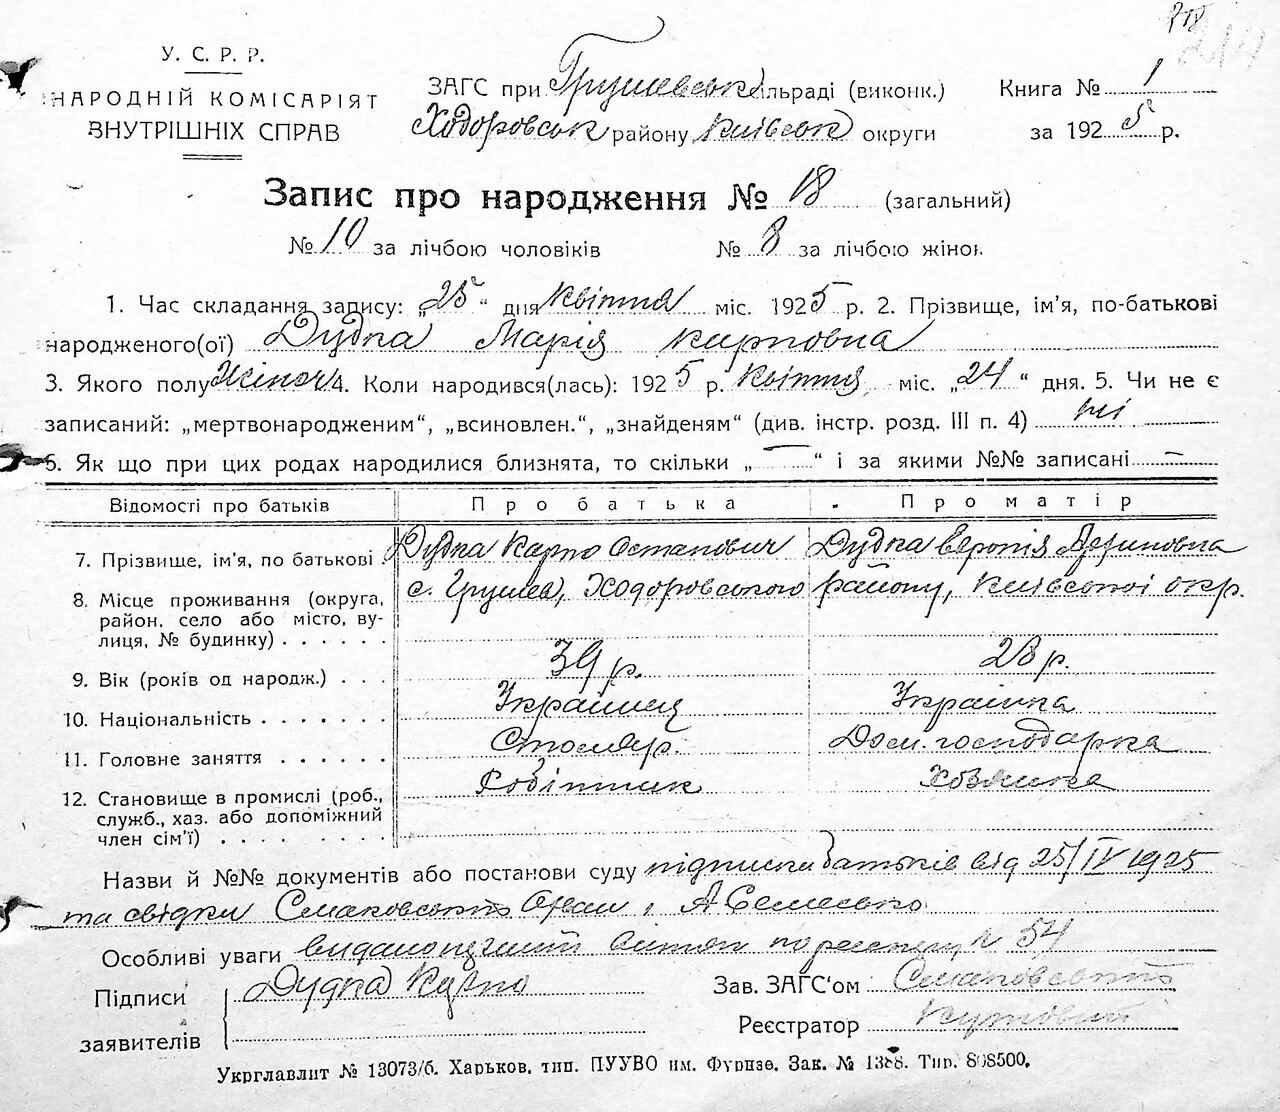 218
214
У. С. Р. Р.
НАРОДНІЙ КОМІСАРІЯТ
ВНУТРІШНІХ СПРАВ
ЗАГС при Грушевськ сільраді (виконк.)
Ходоровськ району Київськ округи
Книга № 1
за 1925 р.
Запис про народження № 18 (загальний)
№ 10 за лічбою чоловіків № 8 за лічбою жінок
1. Час складання запису: „25“ дня Квітня міс. 1925 р. 2. Прізвище, ім'я, по-батькові
народженого(ої) Дудка Марія Карповна
3. Якого полу Жіноч 4. Коли народився(лась): 1925 р. Квітня міс. „24“ дня. 5. Чи не є
записаний: „мертвонародженим“, „всиновлен.“, „знайденям“ (див. інстр. розд. III п. 4) ні
6. Як що при цих родах народилися близнята, то скільки „—“ і за якими №№ записані —
Відомості про батьків Про батька Про матір
7. Прізвище, ім'я, по батькові Дудка Карпо Остапович Дудка Веронія
8. Місце проживання (округа, район, село або місто, ву-лиця, № будинку) . . . . . с. Грушев, Ходоровського району, Київської окр.
9. Вік (років од народж.) . . . 39 р. 28 р.
10. Національність . . . . . . . Українец Українка
11. Головне заняття . . . . . . Столяр. Дом. господарка
12. Становище в промислі (роб., служб., хаз. або допоміжний член сім'ї) . . . . . . . Робітник Хозяйка
Назви й №№ документів або постанови суду підписки батьків від 25/IV 1925
та свідки Смаковський і А
Особливі уваги видано витяг по реєстру № 54
Підписи заявителів Дудка Карпо
Зав. ЗАГС'ом Смаковський
Реєстратор
Укрглавлит № 13073/б. Харьков, тип. ПУУВО им. Фрунзе. Зак. № 1388. Тир. 808500.